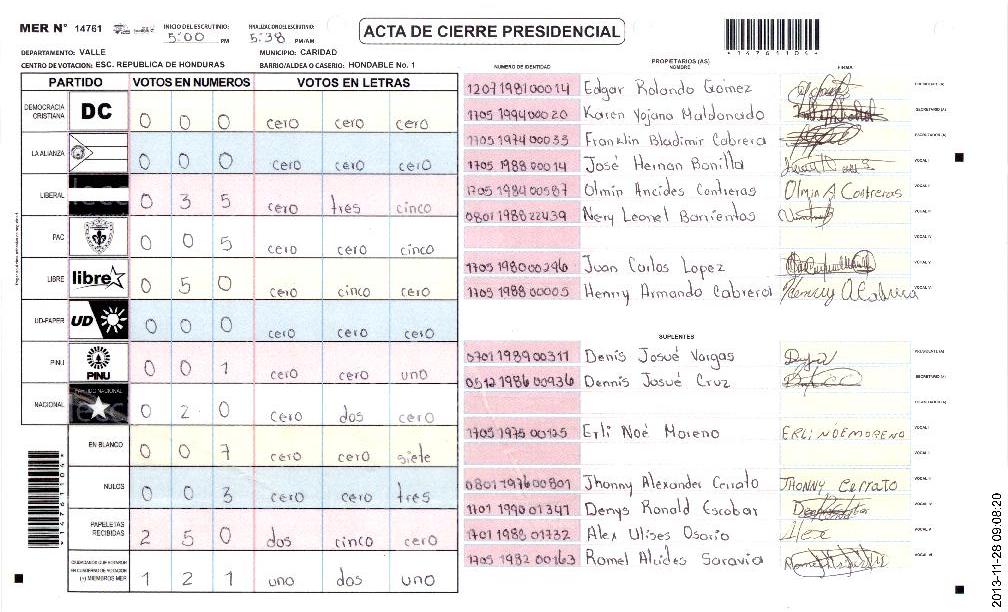 MER N° 14761
INICIO DEL ESCRUTINIO: 5:00 PM
FINALIZACION DEL ESCRUTINIO: 5:38 PM/AM
ACTA DE CIERRE PRESIDENCIAL
*14761104*
DEPARTAMENTO: VALLE
MUNICIPIO: CARIDAD
CENTRO DE VOTACION: ESC. REPUBLICA DE HONDURAS
BARRIO/ALDEA O CASERIO: HONDABLE No. 1
PARTIDO VOTOS EN NUMEROS VOTOS EN LETRAS
DEMOCRACIA CRISTIANA DC 0 0 0 cero cero cero
LA ALIANZA 0 0 0 cero cero cero
LIBERAL 0 3 5 cero tres cinco
PAC 0 0 5 cero cero cinco
LIBRE libre 0 5 0 cero cinco cero
UD-FAPER UD 0 0 0 cero cero cero
PINU PINU 0 0 1 cero cero uno
NACIONAL 0 2 0 cero dos cero
EN BLANCO 0 0 7 cero cero siete
NULOS 0 0 3 cero cero tres
PAPELETAS RECIBIDAS 2 5 0 dos cinco cero
CIUDADANOS QUE VOTARON EN CUADERNO DE VOTACION (+) MIEMBROS MER 1 2 1 uno dos uno
PROPIETARIOS (AS)
NUMERO DE IDENTIDAD NOMBRE FIRMA
1207 1981 00014 Edgar Rolando Gomez
1705 1994 00020 Karen Yojana Maldonado
1705 1974 00033 Franklin Bladimir Cabrera
1705 1988 00014 José Hernan Bonilla
1705 1984 00587 Olmin Ancides Contreras Olmin A Contreras
0801 1988 22439 Nery Leonel Barrientos
1705 1980 00296 Juan Carlos Lopez
1705 1988 00005 Henny Armando Cabrera
SUPLENTES
0701 1989 00311 Denis Josué Vargas
0512 1986 00936 Dennis Josué Cruz
1705 1975 00125 Erli Noé Moreno ERLI NOE MORENO
0801 1976 00801 Jhonny Alexander Cerrato JHONNY Cerrato
1701 1990 01347 Denys Ronald Escobar
1701 1988 01732 Alex Ulises Osorio Alex
1705 1982 00163 Romel Alcides Saravia
2013-11-28 09:08:20